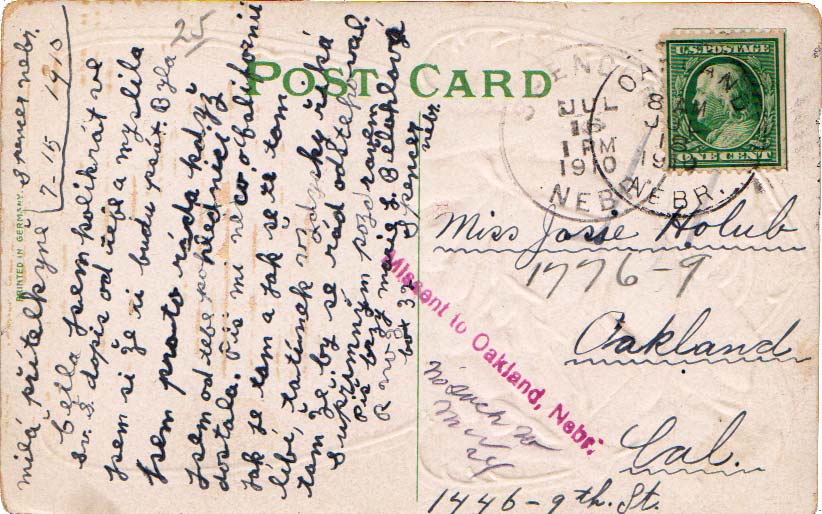 Spencer nebr.
7-15 1910
25
milá přítelkyně
četla jsem kolikrát ve
sv. s. dopis od tebe a myslila
jsem si že ti budu psát. Byla
jsem proto ráda když
jsem od tebe pohlednici
dostala. Piš mi něco o Californii
jak je tam a jak se ti tam
líbí, tatínek vždycky říká
tam že by se rád odstěhoval.
S upřímným pozdravem
Piš brzy marie L Běluhlová
R no 2 box 32 Spencer
nebr.
POST CARD
PRINTED IN GERMANY.
U.S. POSTAGE
ONE CENT
SPENCER
JUL
15
1 PM
1910
NEBR.
OAKLAND
8 AM
JUL
18
1910
NEBR.
Missent to Oakland, Nebr.
No such no
Miss Josie Holub
1776-9
Oakland
Cal.
1446-9th. St.